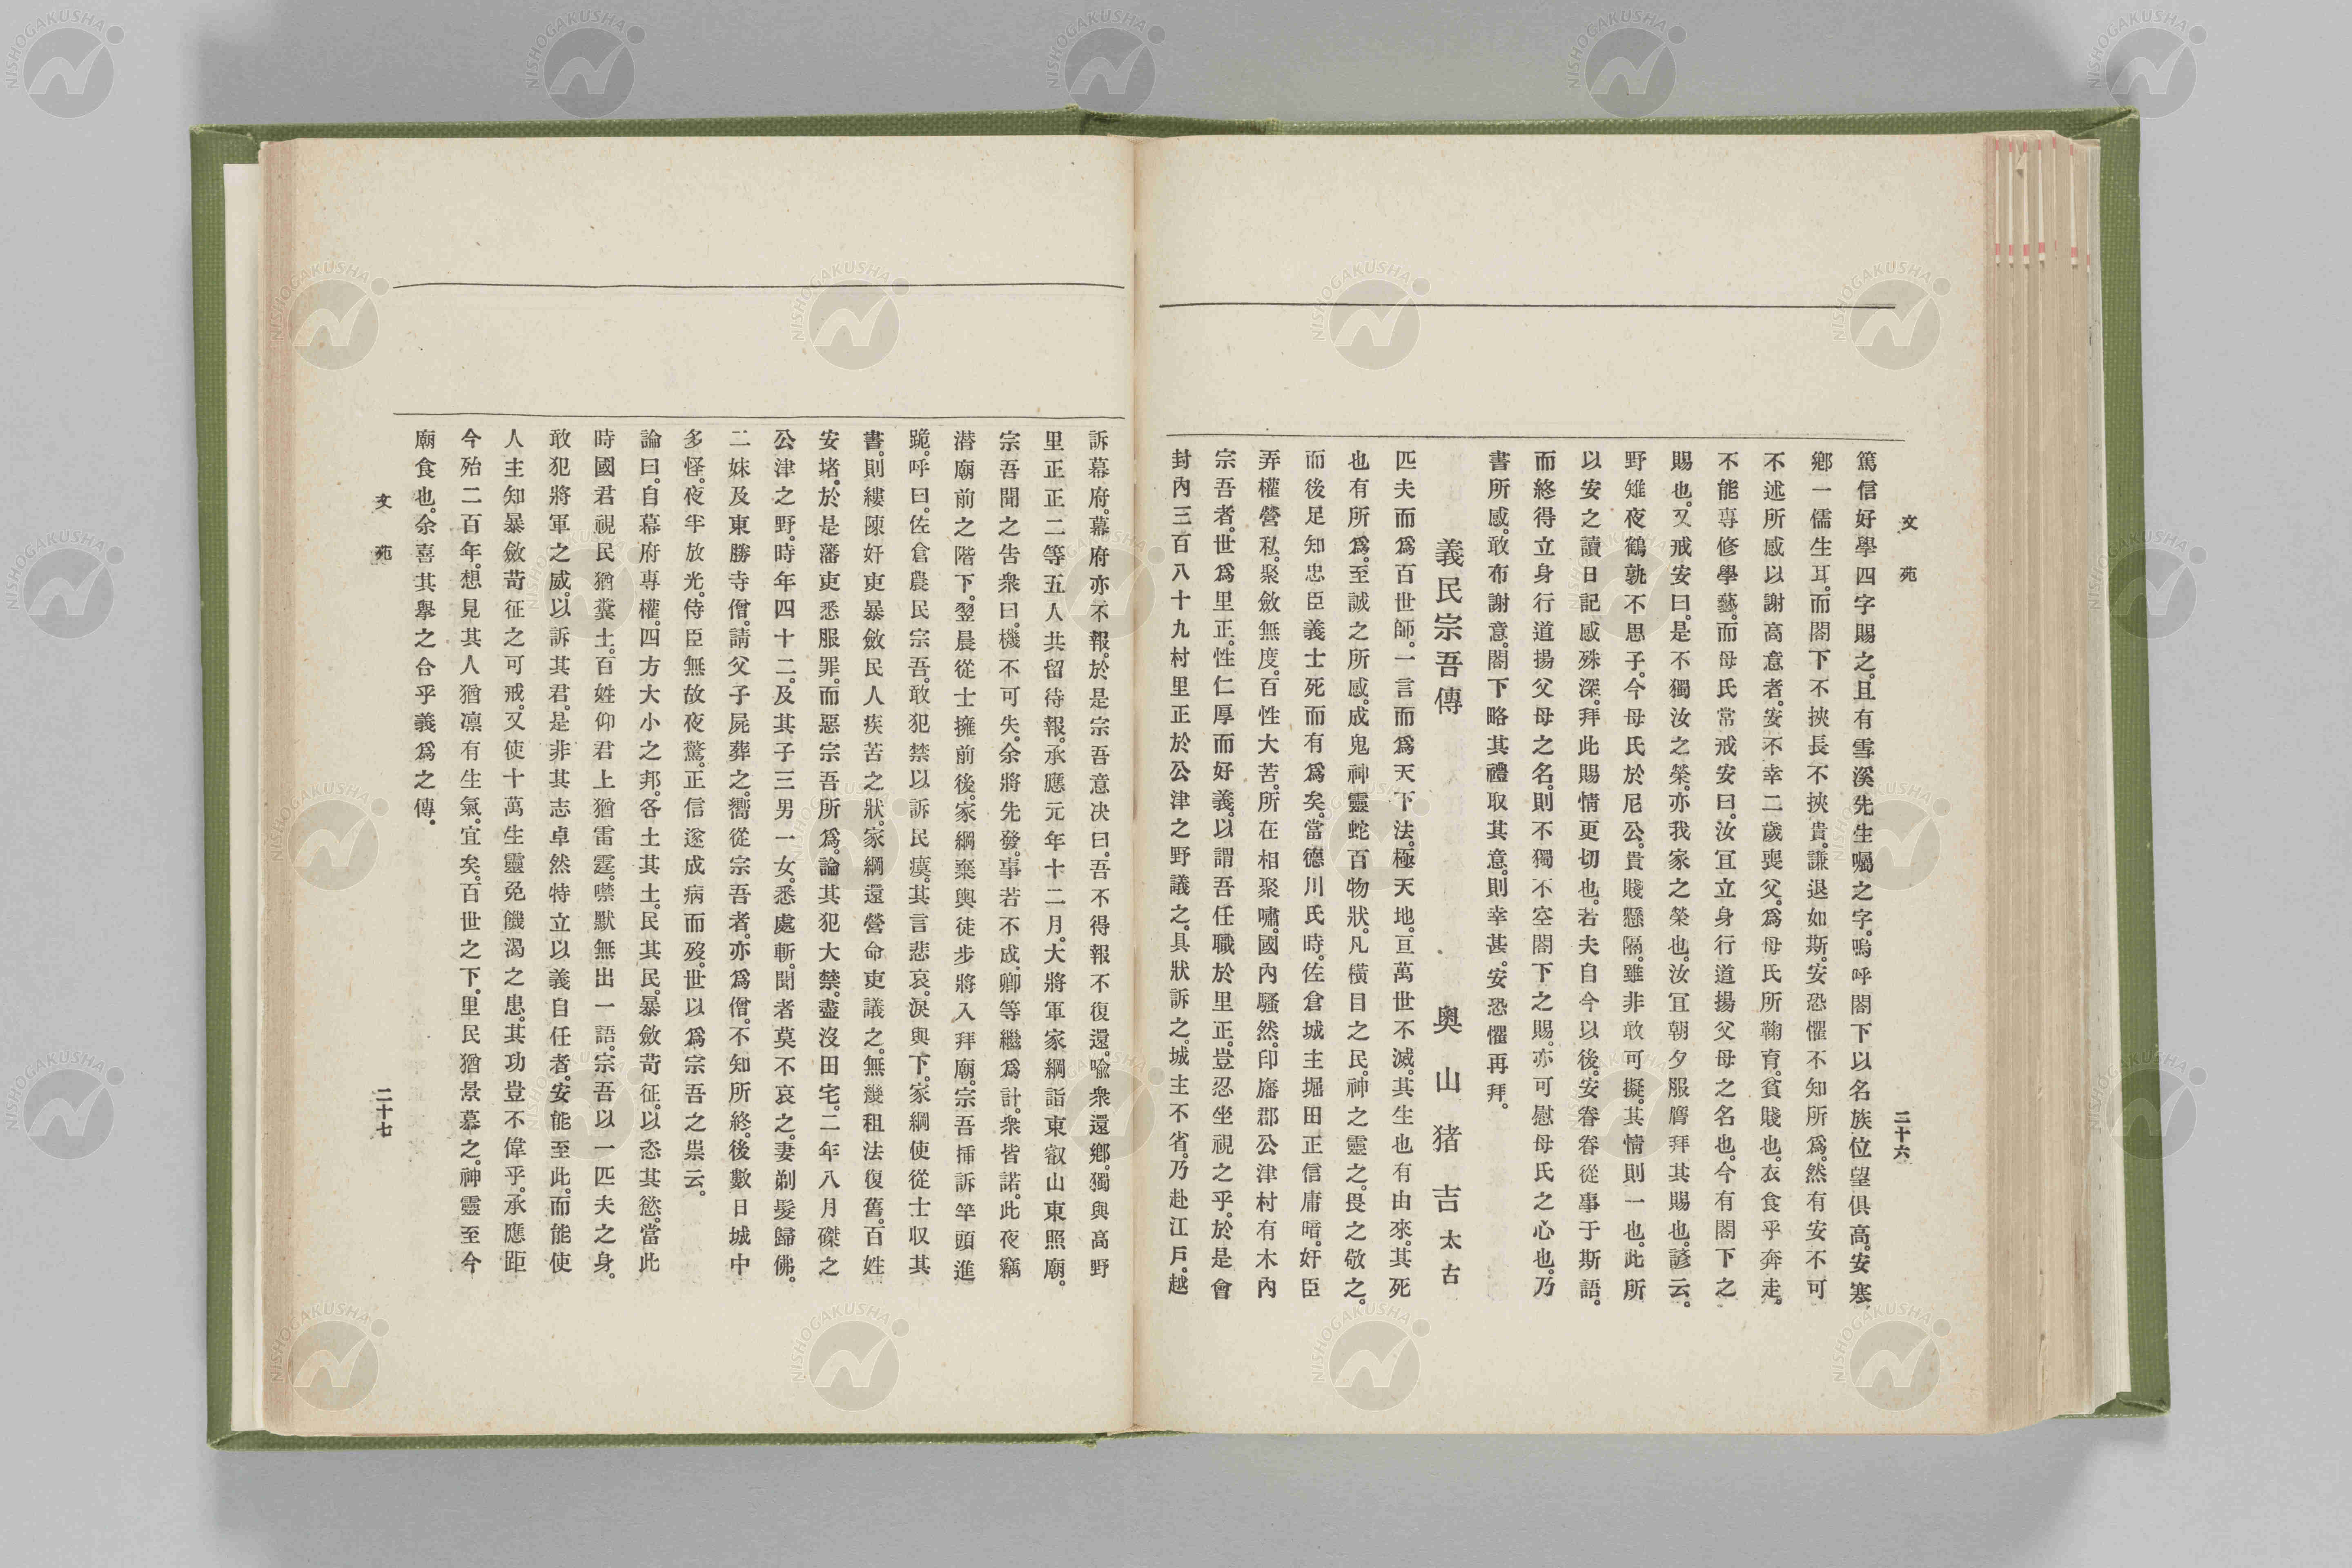 文苑
二十六
篤信好學四字賜之。且有雪溪先生囑之字。嗚呼閤下以名族位望俱高。安寒
鄕一儒生耳。而閤下不挾長不挾貴。謙退如斯。安恐懼不知所爲。然有安不可
不述所感以謝高意者。安不幸二歲喪父。爲母氏所鞠育。貧賤也。衣食乎奔走。
不能專修學藝。而母氏常戒安曰。汝宜立身行道揚父母之名也。今有閤下之
賜也。又戒安曰。是不獨汝之榮。亦我家之榮也。汝宜朝夕服膺拜其賜也。諺云。
野雉夜鶴孰不思子。今母氏於尼公。貴賤懸隔。雖非敢可擬。其情則一也。此所
以安之讀日記感殊深。拜此賜情更切也。若夫自今以後。安眷眷從事于斯語。
而終得立身行道揚父母之名。則不獨不空閤下之賜。亦可慰母氏之心也。乃
書所感。敢布謝意。閤下略其禮取其意。則幸甚。安恐懼再拜。
義民宗吾傳 奧山猪吉 太古
匹夫而爲百世師。一言而爲天下法。極天地。亘萬世不滅。其生也有由來。其死
也有所爲。至誠之所感。成鬼神靈蛇百物狀。凡橫目之民。神之靈之。畏之敬之。
而後足知忠臣義士死而有爲矣。當德川氏時。佐倉城主堀田正信庸暗。奸臣
弄權營私。聚斂無度。百性大苦。所在相聚嘯。國內騷然。印旛郡公津村有木內
宗吾者。世爲里正。性仁厚而好義。以謂吾任職於里正。豈忍坐視之乎。於是會
封內三百八十九村里正於公津之野議之。具狀訴之。城主不省。乃赴江戶。越
訴幕府。幕府亦不報。於是宗吾意决曰。吾不得報不復還。喩衆還鄕。獨與高野
里正正二等五人共留待報。承應元年十二月。大將軍家綱詣東叡山東照廟。
宗吾聞之告衆曰。機不可失。余將先發。事若不成。卿等繼爲計。衆皆諾。此夜竊
潜廟前之階下。翌晨從士擁前後。家綱棄輿徒步將入拜廟。宗吾揷訴竿頭進
跪。呼曰。佐倉農民宗吾。敢犯禁以訴民瘼。其言悲哀。淚與下。家綱使從士収其
書。則縷陳奸吏暴斂民人疾苦之狀。家綱還營命吏議之。無幾租法復舊。百姓
安堵。於是藩吏悉服罪。而惡宗吾所爲。論其犯大禁。盡沒田宅。二年八月磔之
公津之野。時年四十二。及其子三男一女。悉處斬。聞者莫不哀之。妻剃髮歸佛。
二妹及東勝寺僧。請父子屍葬之。嚮從宗吾者。亦爲僧。不知所終。後數日城中
多怪。夜半放光。侍臣無故夜驚。正信遂成病而歿。世以爲宗吾之祟云。
論曰。自幕府專權。四方大小之邦。各土其土。民其民。暴斂苛征。以恣其慾。當此
時國君視民猶糞土。百姓仰君上猶雷霆。噤默無出一語。宗吾以一匹夫之身。
敢犯將軍之威。以訴其君。是非其志卓然特立以義自任者。安能至此。而能使
人主知暴斂苛征之可戒。又使十萬生靈免饑渴之患。其功豈不偉乎。承應距
今殆二百年。想見其人猶凛有生氣。宜矣。百世之下。里民猶景慕之。神靈至今
廟食也。余喜其擧之合乎義爲之傳。
文苑
二十七